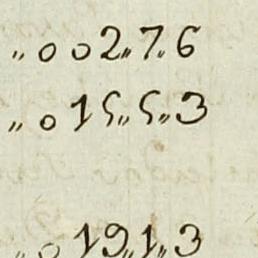 „ 0 02„ 7„ 6
„ 0 15„ 5„ 3
„ 0 19„ 1„ 3